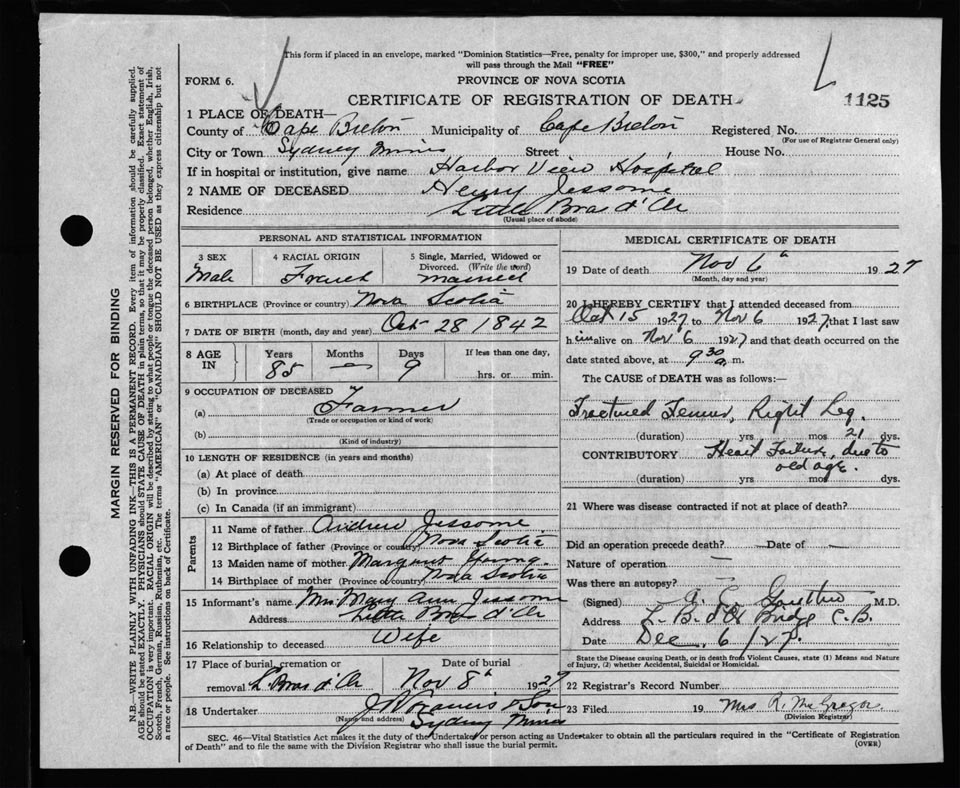 This form if placed in an envelope, marked "Dominion Statistics—Free, penalty for improper use, $300," and properly addressed
will pass through the Mail "FREE"
FORM 6.
PROVINCE OF NOVA SCOTIA
CERTIFICATE OF REGISTRATION OF DEATH
1125
1 PLACE OF DEATH—
County of Cape Breton Municipality of Cape Breton Registered No.
(For use of Registrar General only)
City or Town Sydney Mines Street House No.
If in hospital or institution, give name Harbor View Hospital
2 NAME OF DECEASED Henry Jessome
Residence Little Bras d'Or
(Usual place of abode)
PERSONAL AND STATISTICAL INFORMATION
3 SEX Male
4 RACIAL ORIGIN French
5 Single, Married, Widowed or Divorced. (Write the word) married
6 BIRTHPLACE (Province or country) Nova Scotia
7 DATE OF BIRTH (month, day and year) Oct 28 1842
8 AGE IN Years 85 Months — Days 9 If less than one day, hrs. or min.
9 OCCUPATION OF DECEASED
(a) Farmer
(Trade or occupation or kind of work)
(b)
(Kind of industry)
10 LENGTH OF RESIDENCE (in years and months)
(a) At place of death
(b) In province
(c) In Canada (if an immigrant)
Parents
11 Name of father Andrew Jessome
12 Birthplace of father (Province or country) Nova Scotia
13 Maiden name of mother Margaret Young
14 Birthplace of mother (Province or country) Nova Scotia
15 Informant's name Mrs Mary Ann Jessome
Address Little Bras d'Or
16 Relationship to deceased Wife
17 Place of burial, cremation or removal L. Bras d'Or
Date of burial Nov 8th 1927
18 Undertaker J W Francis & Son
(Name and address) Sydney Mines
MEDICAL CERTIFICATE OF DEATH
19 Date of death Nov 6th 1927
(Month, day and year)
20 I HEREBY CERTIFY that I attended deceased from
Oct 15 1927 to Nov 6 1927 that I last saw
him alive on Nov 6 1927 and that death occurred on the
date stated above, at 9 30 a. m.
The CAUSE of DEATH was as follows:—
Fractured Femur, Right Leg.
(duration) yrs mos 21 dys.
CONTRIBUTORY Heart Failure, due to
old age.
(duration) yrs mos dys.
21 Where was disease contracted if not at place of death?
Did an operation precede death? — Date of —
Nature of operation —
Was there an autopsy? —
(Signed) A. C. M.D.
Address L. B. d'Or Bridge C.B.
Date Dec 6/27
State the Disease causing Death, or in death from Violent Causes, state (1) Means and Nature
of Injury, (2) whether Accidental, Suicidal or Homicidal.
22 Registrar's Record Number
23 Filed 19 Mrs R. McGregor
(Division Registrar)
SEC. 46—Vital Statistics Act makes it the duty of the Undertaker or person acting as Undertaker to obtain all the particulars required in the "Certificate of Registration
of Death" and to file the same with the Division Registrar who shall issue the burial permit.
(OVER)
MARGIN RESERVED FOR BINDING
N.B.—WRITE PLAINLY WITH UNFADING INK—THIS IS A PERMANENT RECORD. Every item of information should be carefully supplied.
AGE should be stated EXACTLY. PHYSICIANS should STATE CAUSE OF DEATH in plain terms, so that it may be properly classified. Exact statement of
OCCUPATION is very important. RACIAL ORIGIN will be described by stating to what people or tongue the deceased person belonged, whether English, Irish,
Scotch, French, German, Russian, Ruthenian, etc. The terms "AMERICAN" or "CANADIAN" SHOULD NOT BE USED as they express citizenship but not
a race or people. See instructions on back of Certificate.